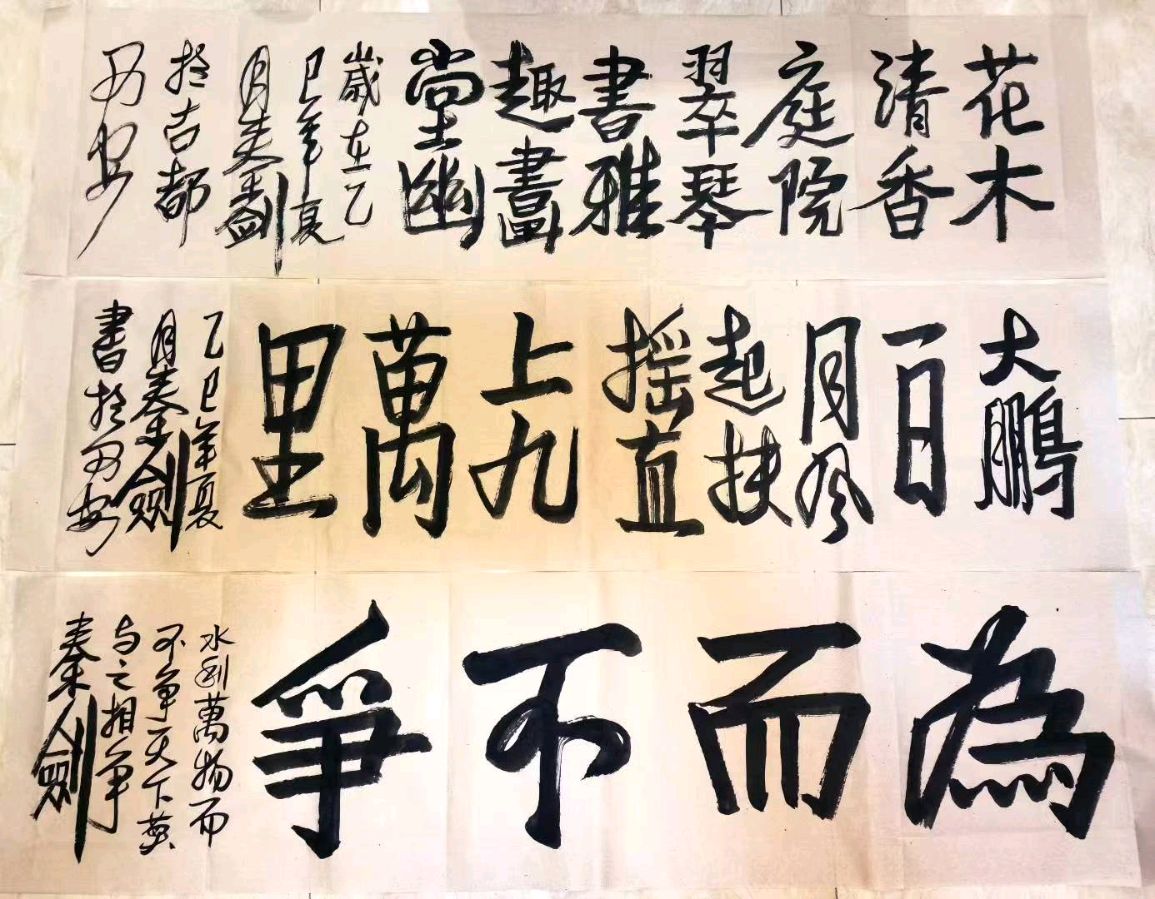 花木
清香
庭院
翠琴
書雅
趣畫
堂幽
歲在乙
巳年夏
月秦剑
於古都
西安
大鵬
一日
同风
起扶
摇直
上九
萬
里
乙巳年夏
月秦劍
書於西安
為而不爭
水利萬物而
不争天下莫
与之相争
秦人劍